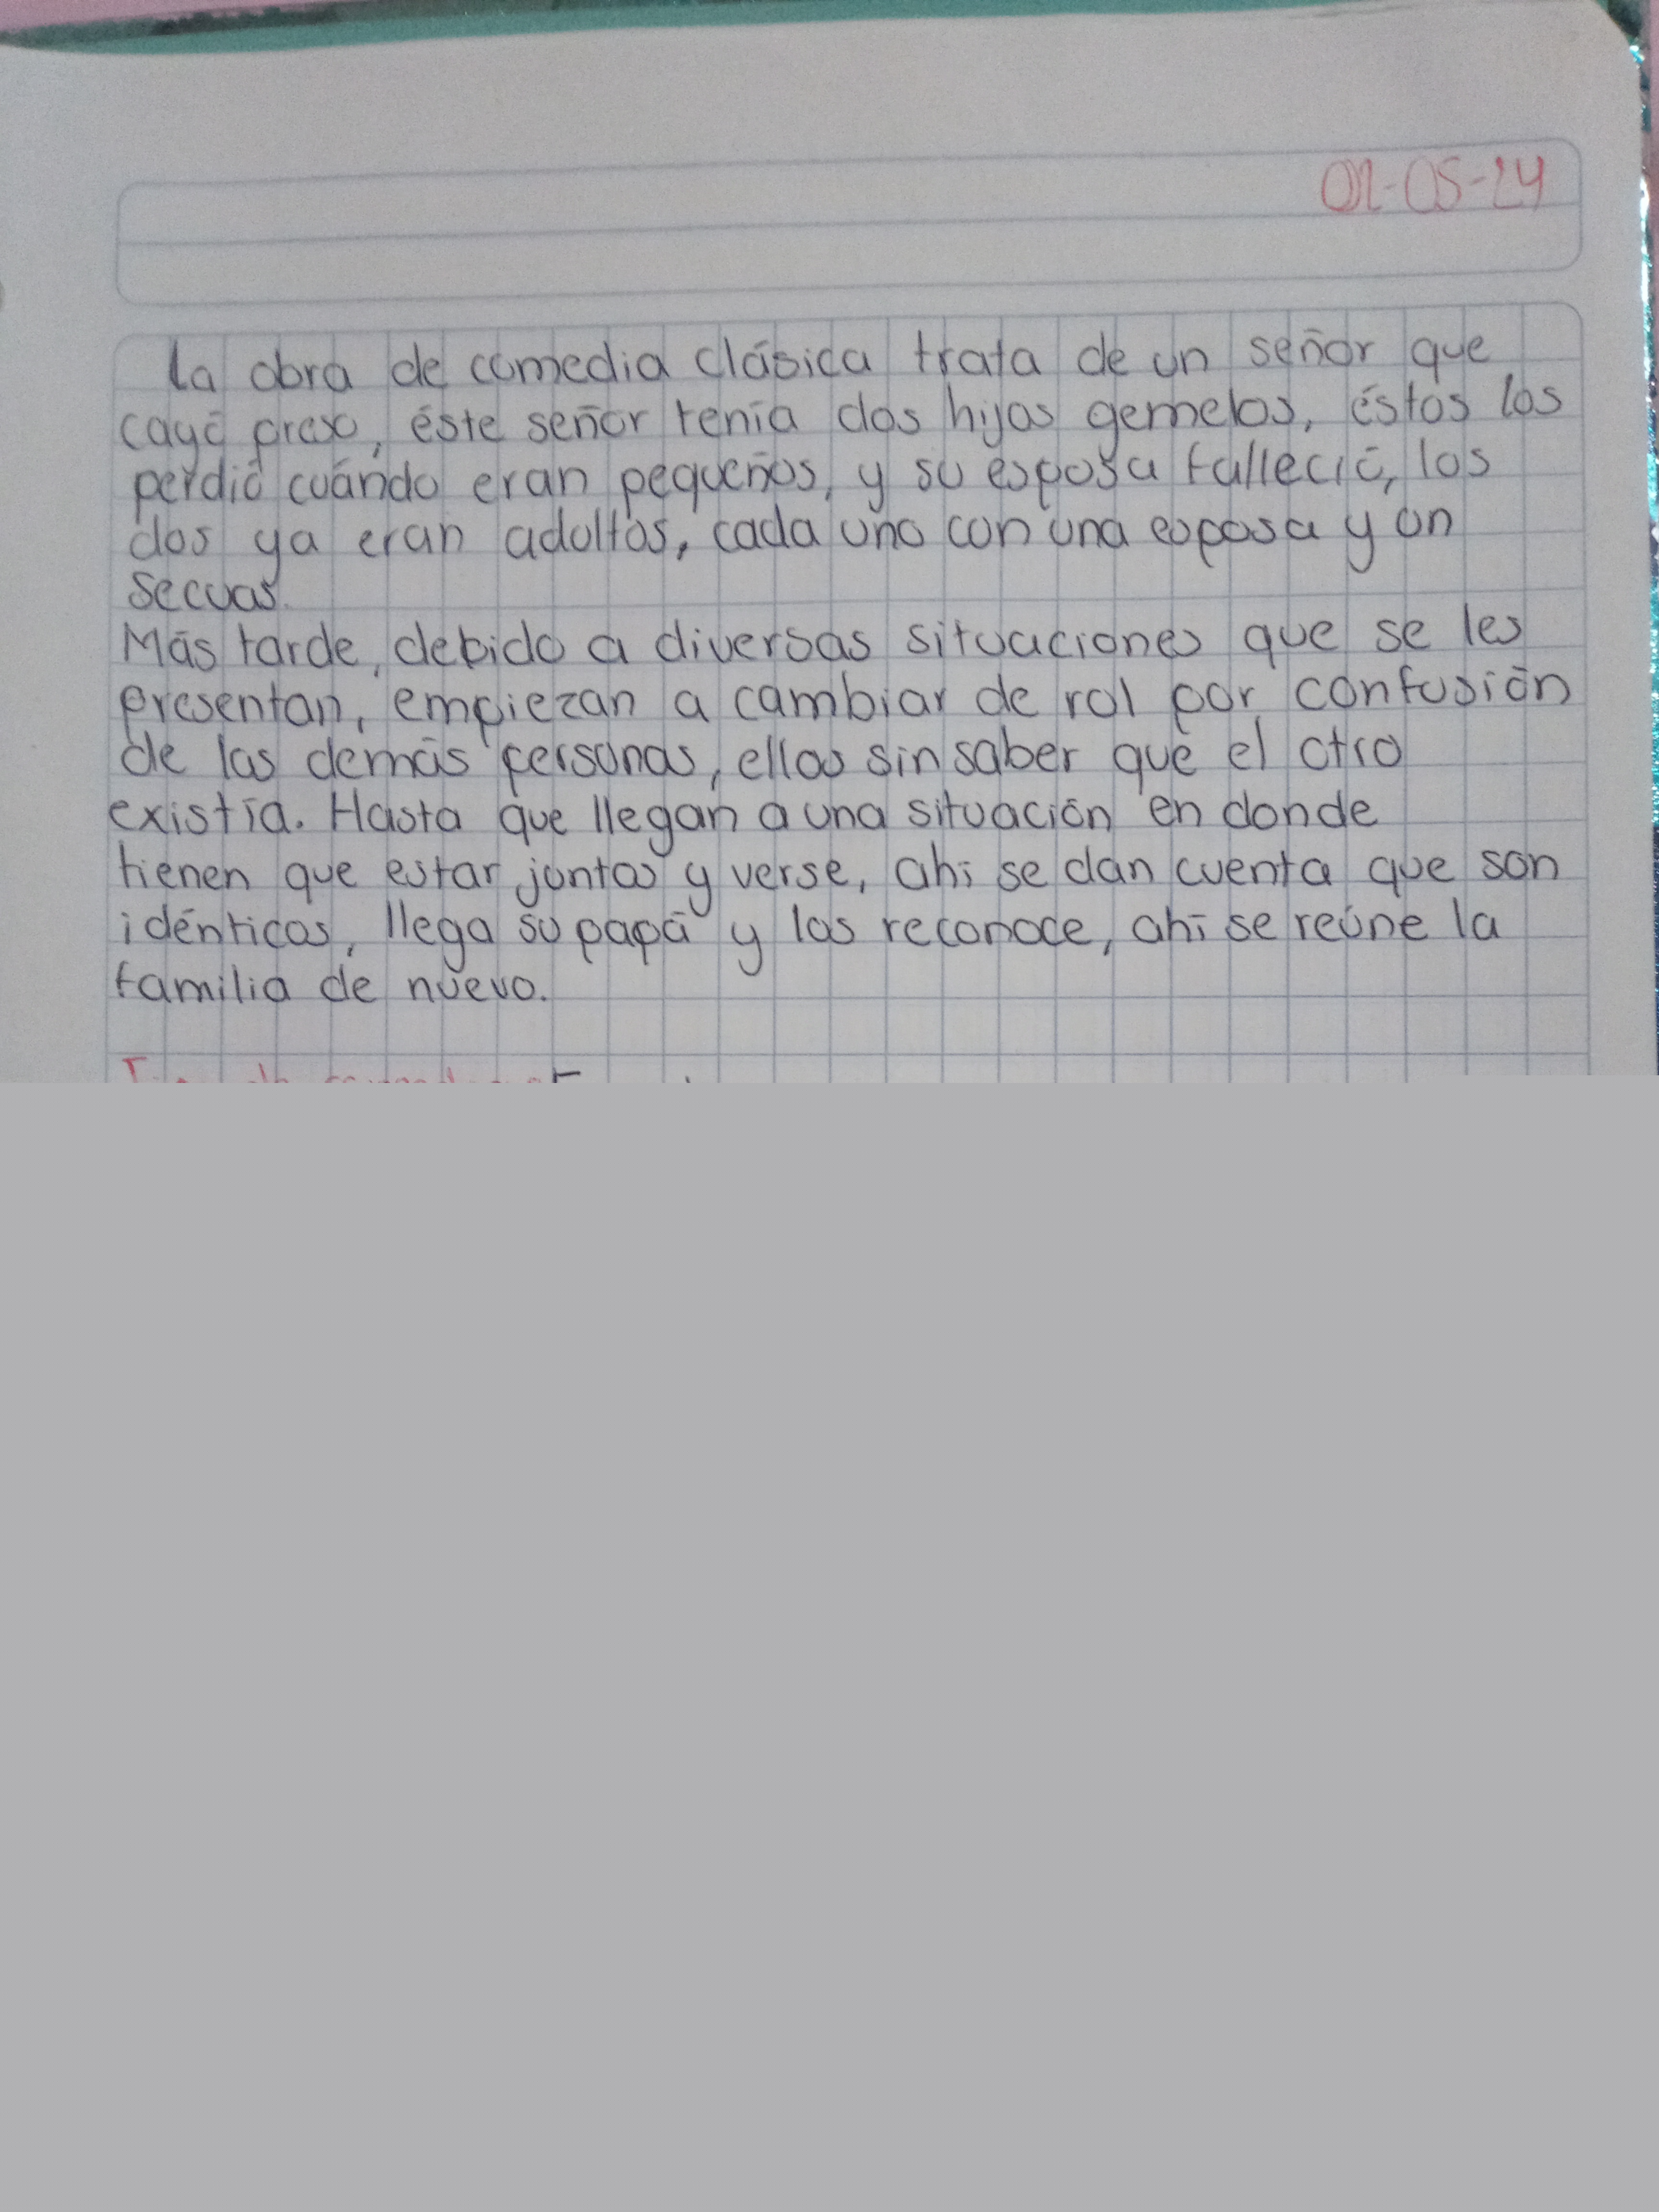 02-05-24
La obra de comedia clásica trata de un señor que
cayó preso, éste señor tenía dos hijos gemelos, éstos los
perdió cuándo eran pequeños, y su esposa falleció, los
dos ya eran adultos, cada uno con una esposa y un
secuas.
Más tarde, debido a diversas situaciones que se les
presentan, empiezan a cambiar de rol por confusión
de las demás personas, ellos sin saber que el otro
existía. Hasta que llegan a una situación en donde
tienen que estar juntos y verse, ahí se dan cuenta que son
idénticos, llega su papá y los reconoce, ahí se reúne la
familia de nuevo.